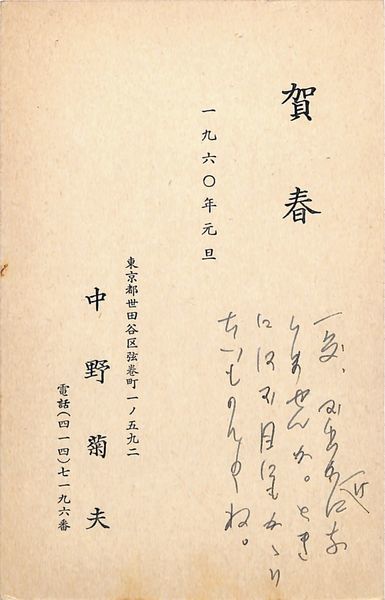 賀春
一九六〇年元旦
一度、お出かけにな
りませんか。とき
にはお目にもかゝり
たいものですね。
東京都世田谷区弦巻町一ノ五九二
中野菊夫
電話(四一四)七一九六番